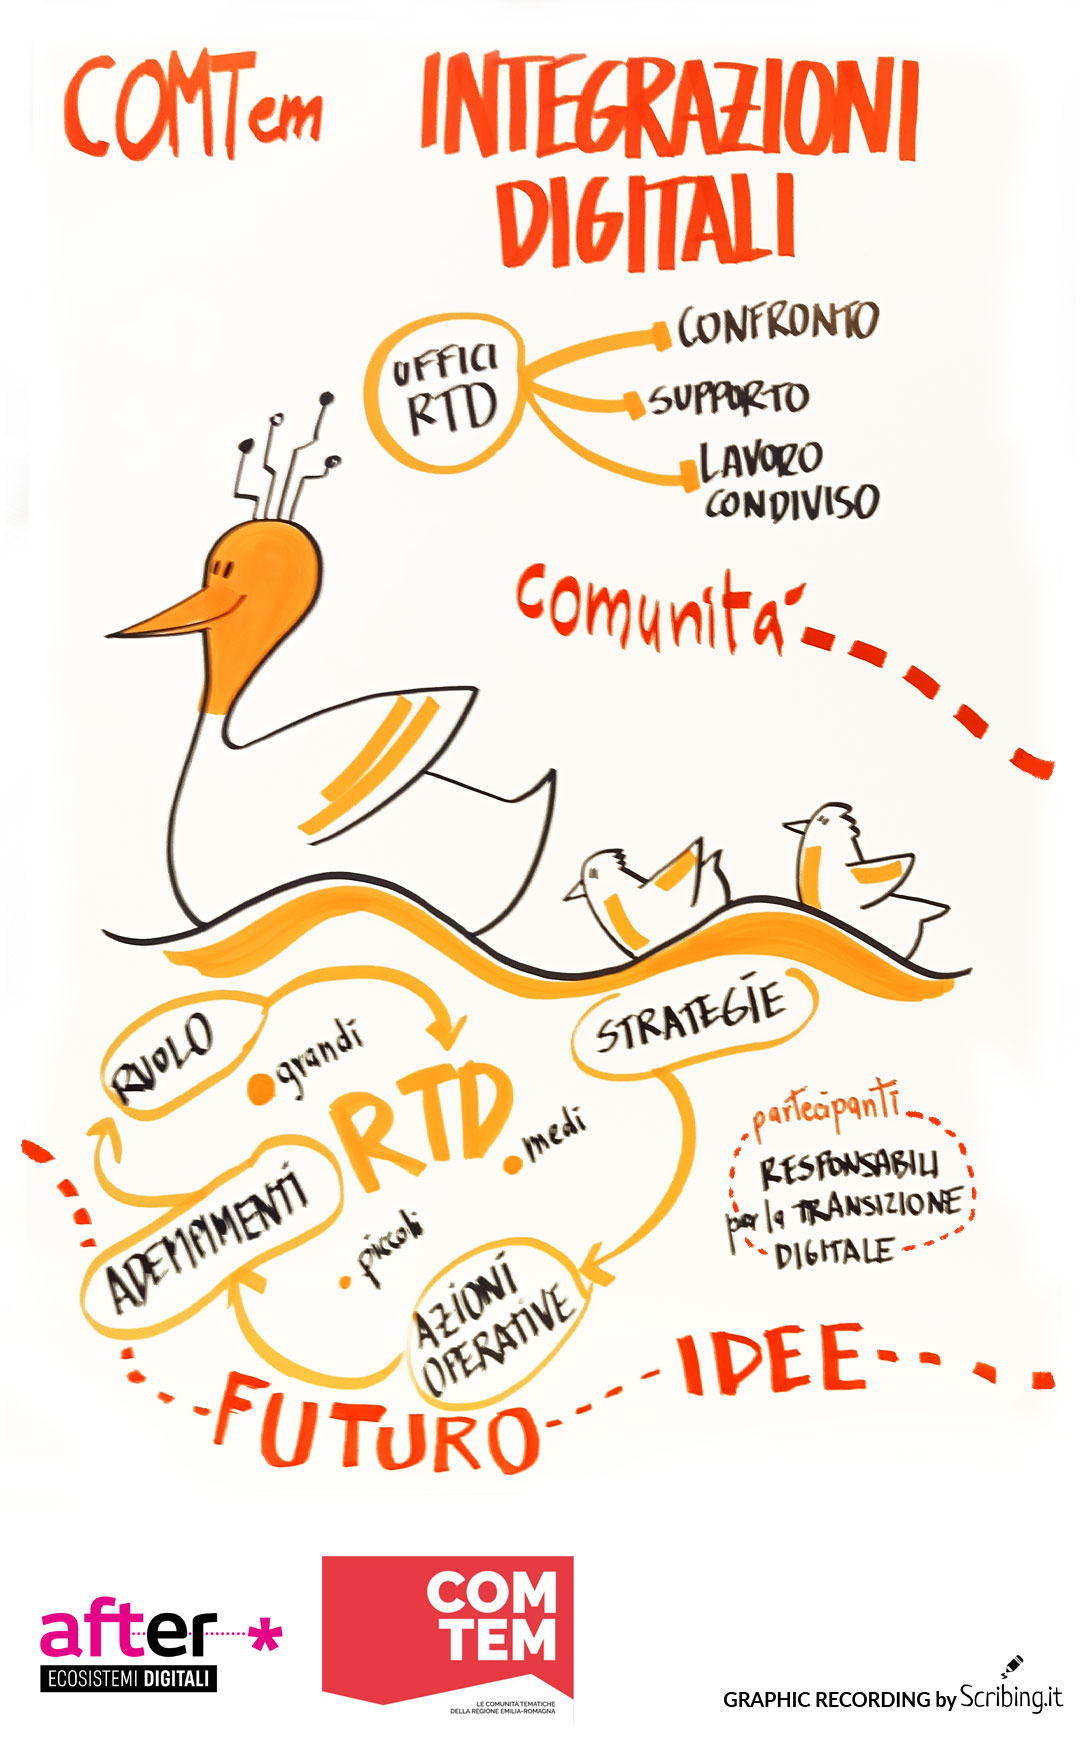 COMTem
INTEGRAZIONI
DIGITALI
UFFICI
RTD
CONFRONTO
SUPPORTO
LAVORO
CONDIVISO
comunità
RUOLO
grandi
RTD
medi
piccoli
STRATEGIE
ADEMPIMENTI
AZIONI
OPERATIVE
partecipanti
RESPONSABILI
per la TRANSIZIONE
DIGITALE
FUTURO
IDEE
after*
ECOSISTEMI DIGITALI
COM
TEM
LE COMUNITÀ TEMATICHE
DELLA REGIONE EMILIA-ROMAGNA
GRAPHIC RECORDING by Scribing.it